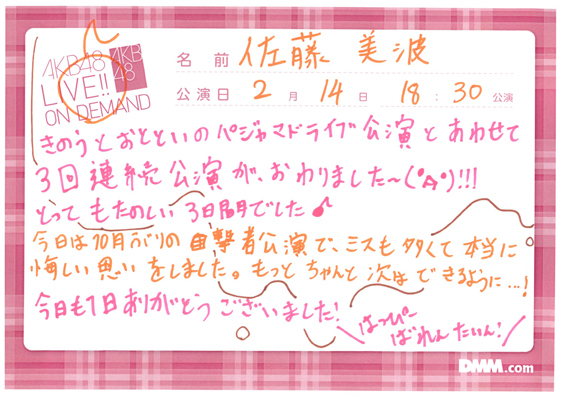 AKB48
LIVE!!
ON DEMAND
AKB
48
名前 佐藤 美波
公演日 2月 14日 18:30 公演
きのうとおとといのパジャマドライブ公演とあわせて
3回連続公演が、おわりました〜(°Д°)!!!
とってもたのしい3日間でした♪
今日は10月ぶりの目撃者公演で、ミスも多くて本当に
悔しい思いをしました。もっとちゃんと次はできるように…!
今日も1日ありがとうございました!
\はっぴー
ばれんたいん!/
DMM.com